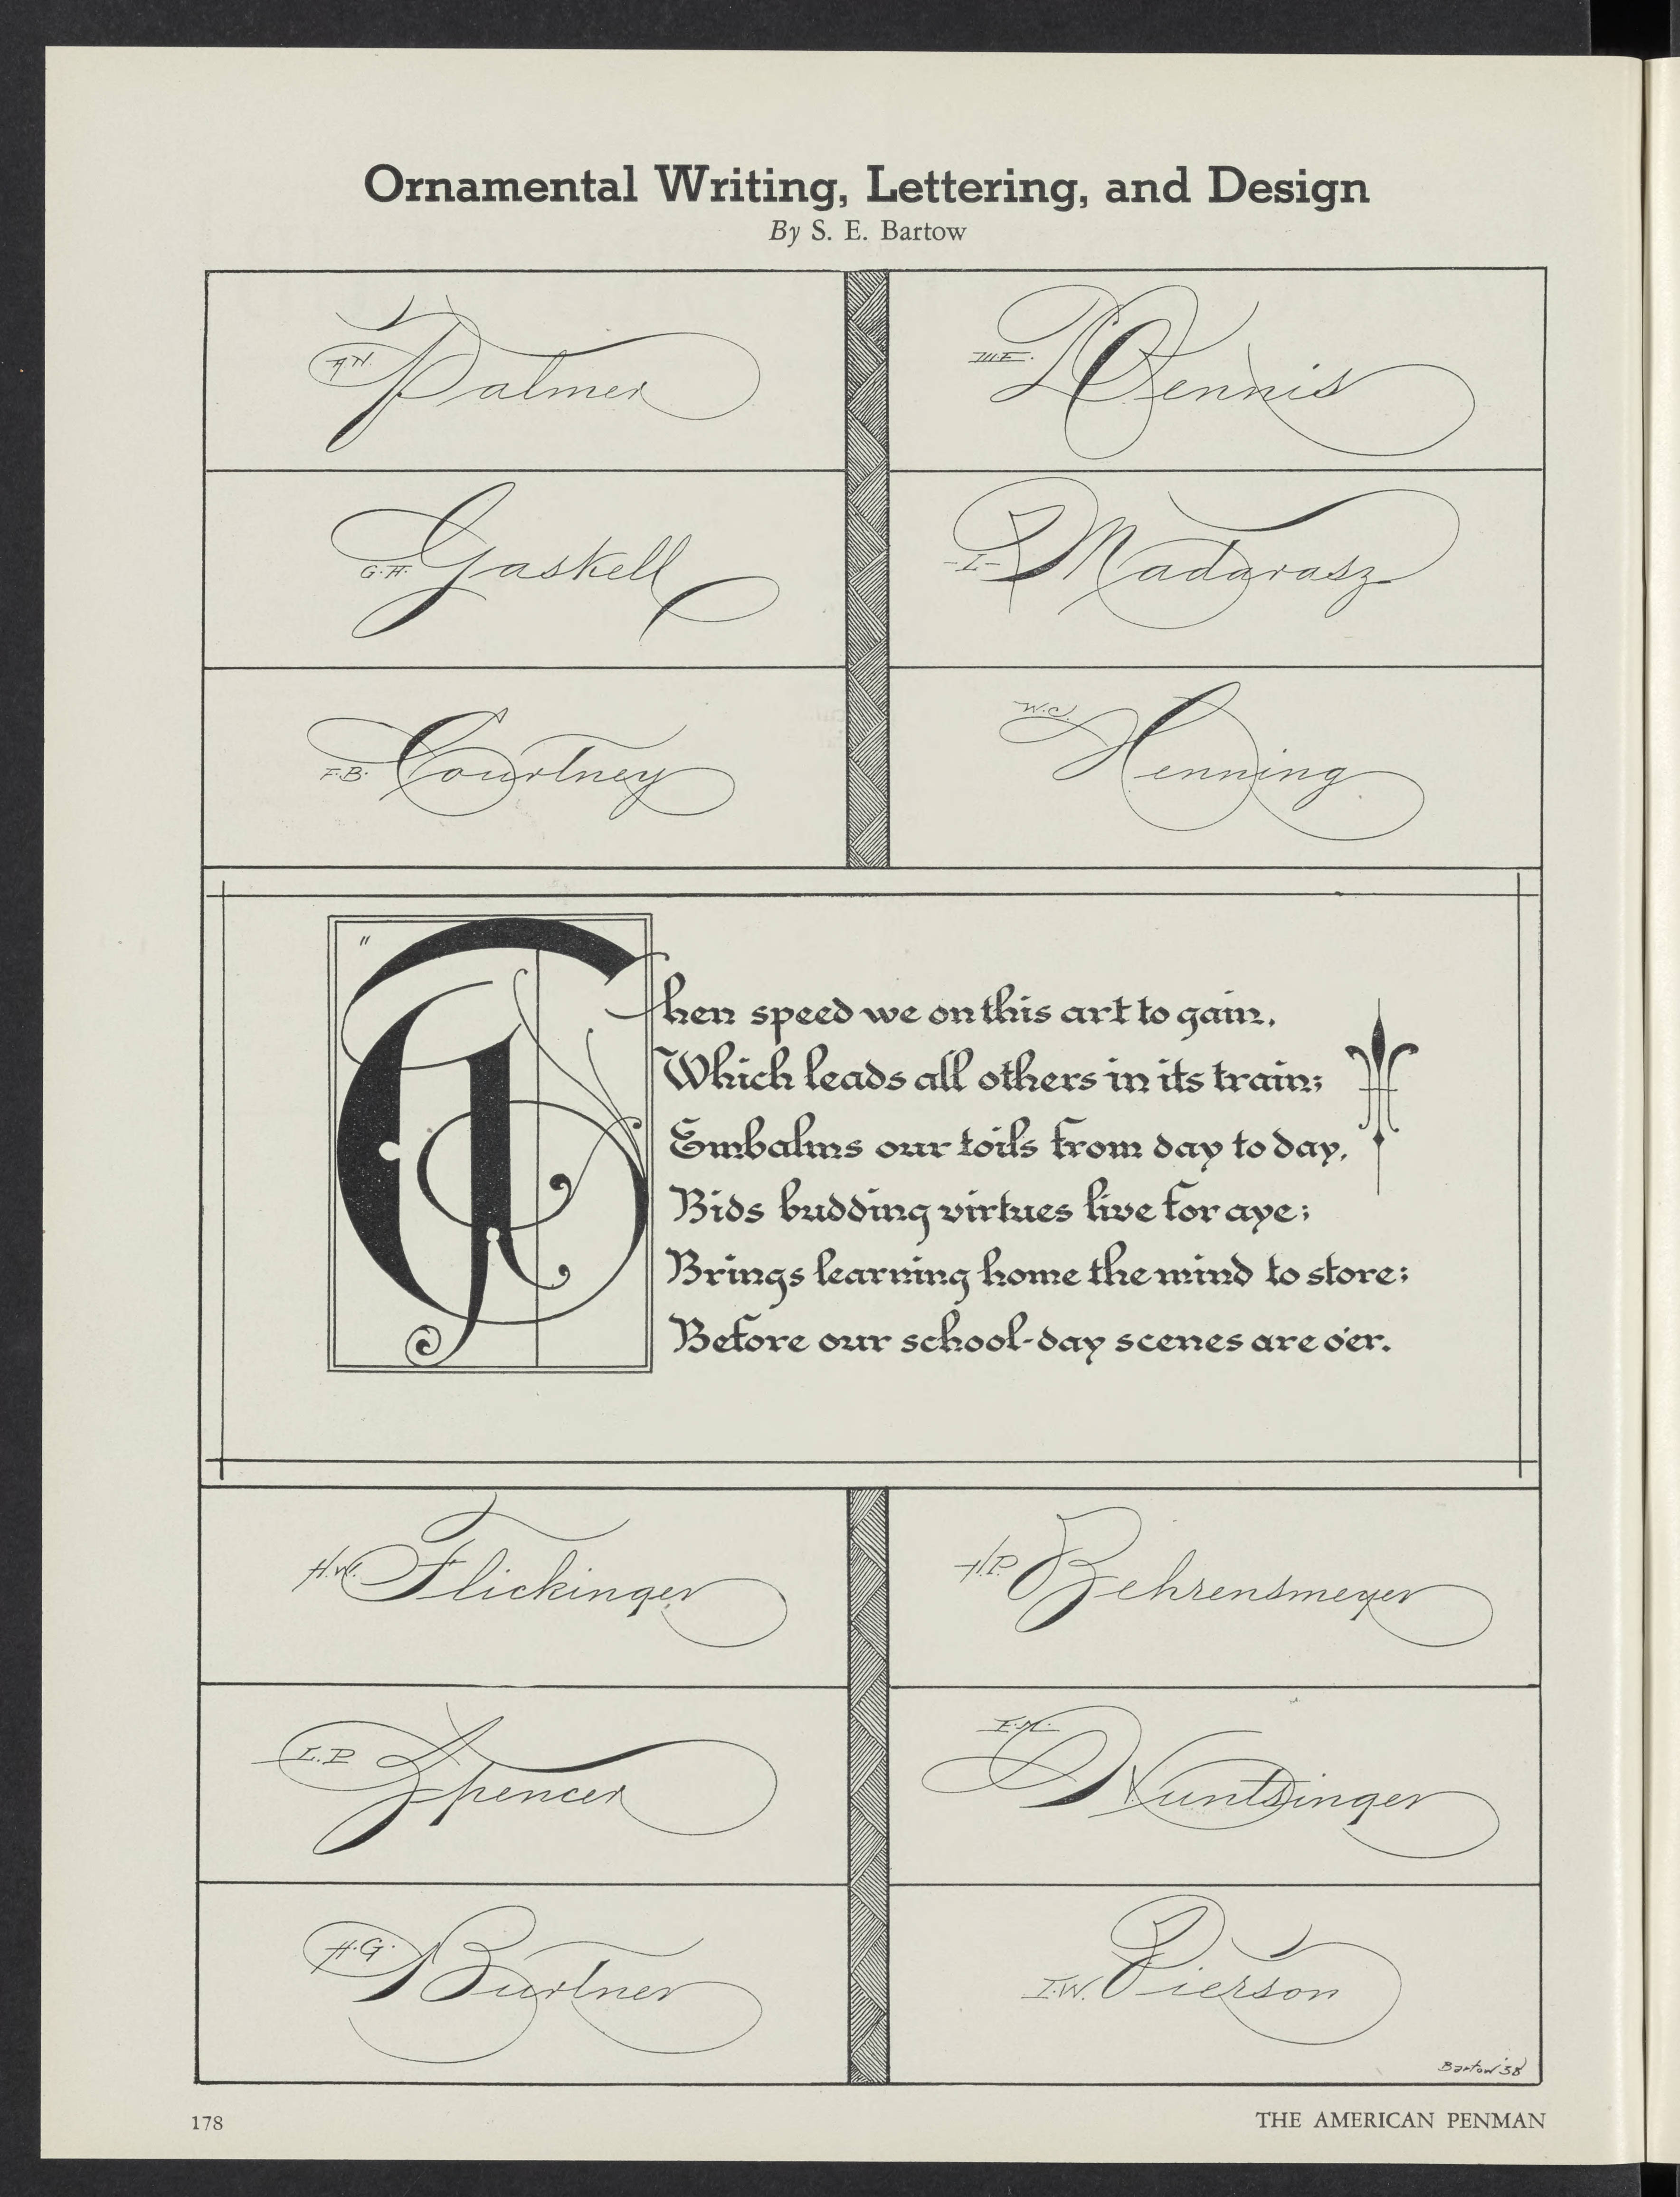 Ornamental Writing, Lettering, and Design
By S. E. Bartow
A.N. Palmer
M.E. Dennis
G.A. Gaskell
-L- Madarasz
F.B. Courtney
W.C. Henning
"Then speed we on this art to gain,
Which leads all others in its train;
Embalms our toils from day to day,
Bids budding virtues live for aye;
Brings learning home the mind to store;
Before our school-day scenes are o'er.
H.W. Flickinger
H.P. Behrensmeyer
L.P. Spencer
E.M. Huntsinger
H.G. Burtner
I.W. Pierson
Bartow '38
178
THE AMERICAN PENMAN